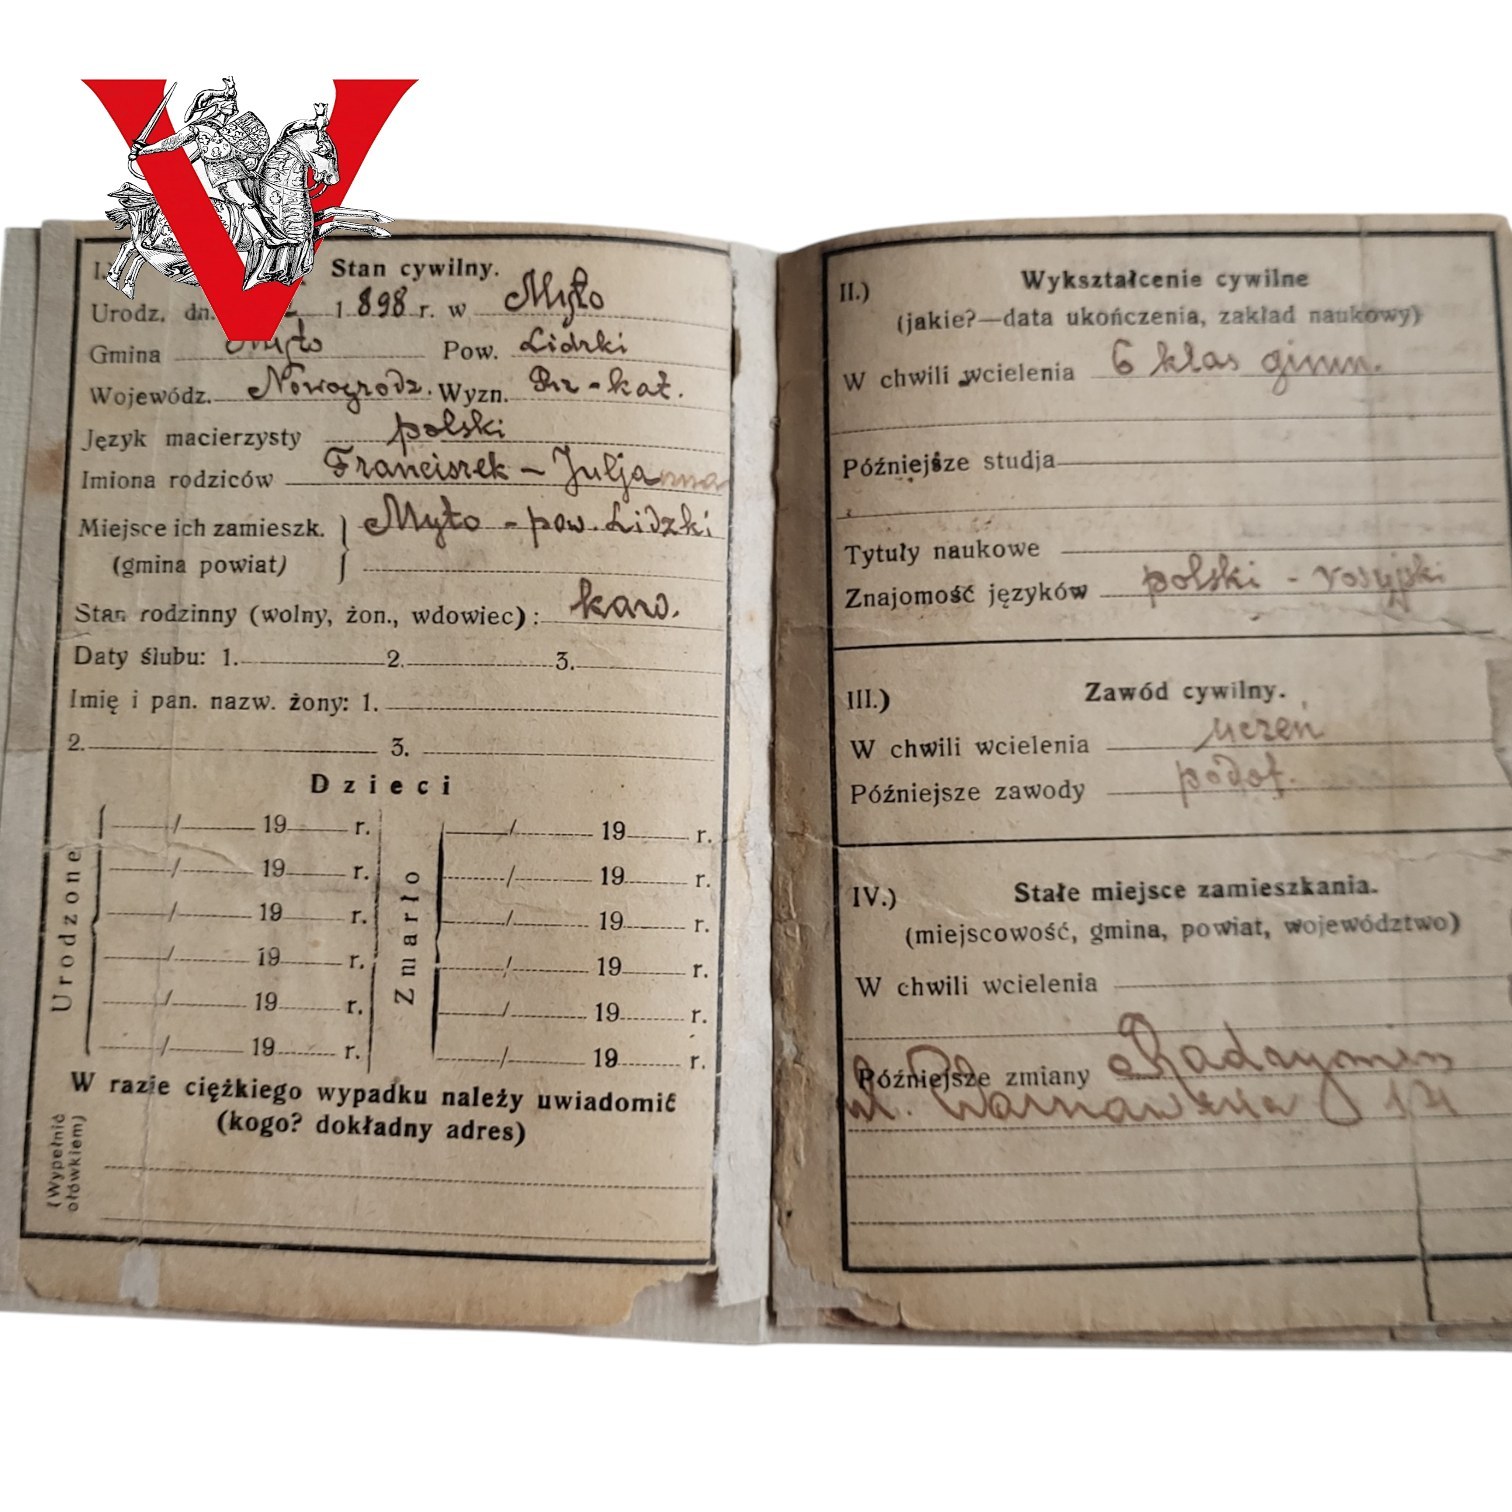 I.) Stan cywilny.
Urodz. dn. 1 898 r. w Myto
Gmina Myto Pow. Lidzki
Wojewódz. Nowogrodz. Wyzn. Rz-kat.
Język macierzysty polski
Imiona rodziców Franciszek - Juljanna
Miejsce ich zamieszk. Myto - pow. Lidzki
(gmina powiat)
Stan rodzinny (wolny, żon., wdowiec): kaw.
Daty ślubu: 1. 2. 3.
Imię i pan. nazw. żony: 1.
2. 3.
Dzieci
Urodzone
/ 19 r.
/ 19 r.
/ 19 r.
/ 19 r.
/ 19 r.
/ 19 r.
Zmarło
/ 19 r.
/ 19 r.
/ 19 r.
/ 19 r.
/ 19 r.
/ 19 r.
W razie ciężkiego wypadku należy uwiadomić
(kogo? dokładny adres)
(Wypełnić
ołówkiem)
II.) Wykształcenie cywilne
(jakie?—data ukończenia, zakład naukowy)
W chwili wcielenia 6 klas gimn.
Późniejsze studja
Tytuły naukowe
Znajomość języków polski - rosyjski
III.) Zawód cywilny.
W chwili wcielenia uczeń
Późniejsze zawody podof.
IV.) Stałe miejsce zamieszkania.
(miejscowość, gmina, powiat, województwo)
W chwili wcielenia
Późniejsze zmiany Radzymin
ul. Warszawska